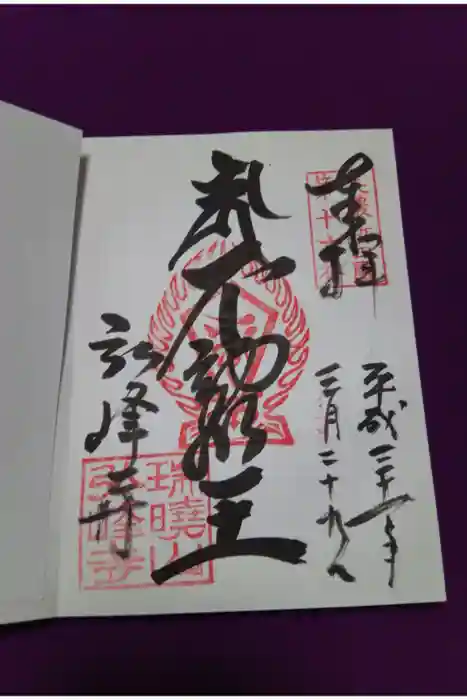 奉拝
平成三十一年
三月二十九日
不動明王
弘峰寺
瑞曉山
弘峰寺